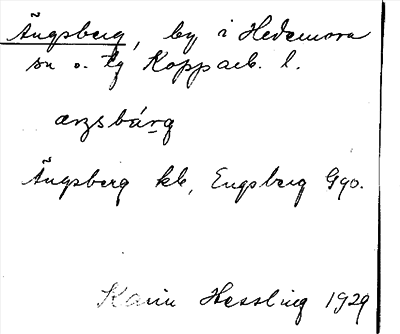 Ängsberg, by i Hedemora
sn o. tg Kopparb. l.
ærsbárg
Ängsberg kb, Engsberg Ggo.
Karin Hessling 1929